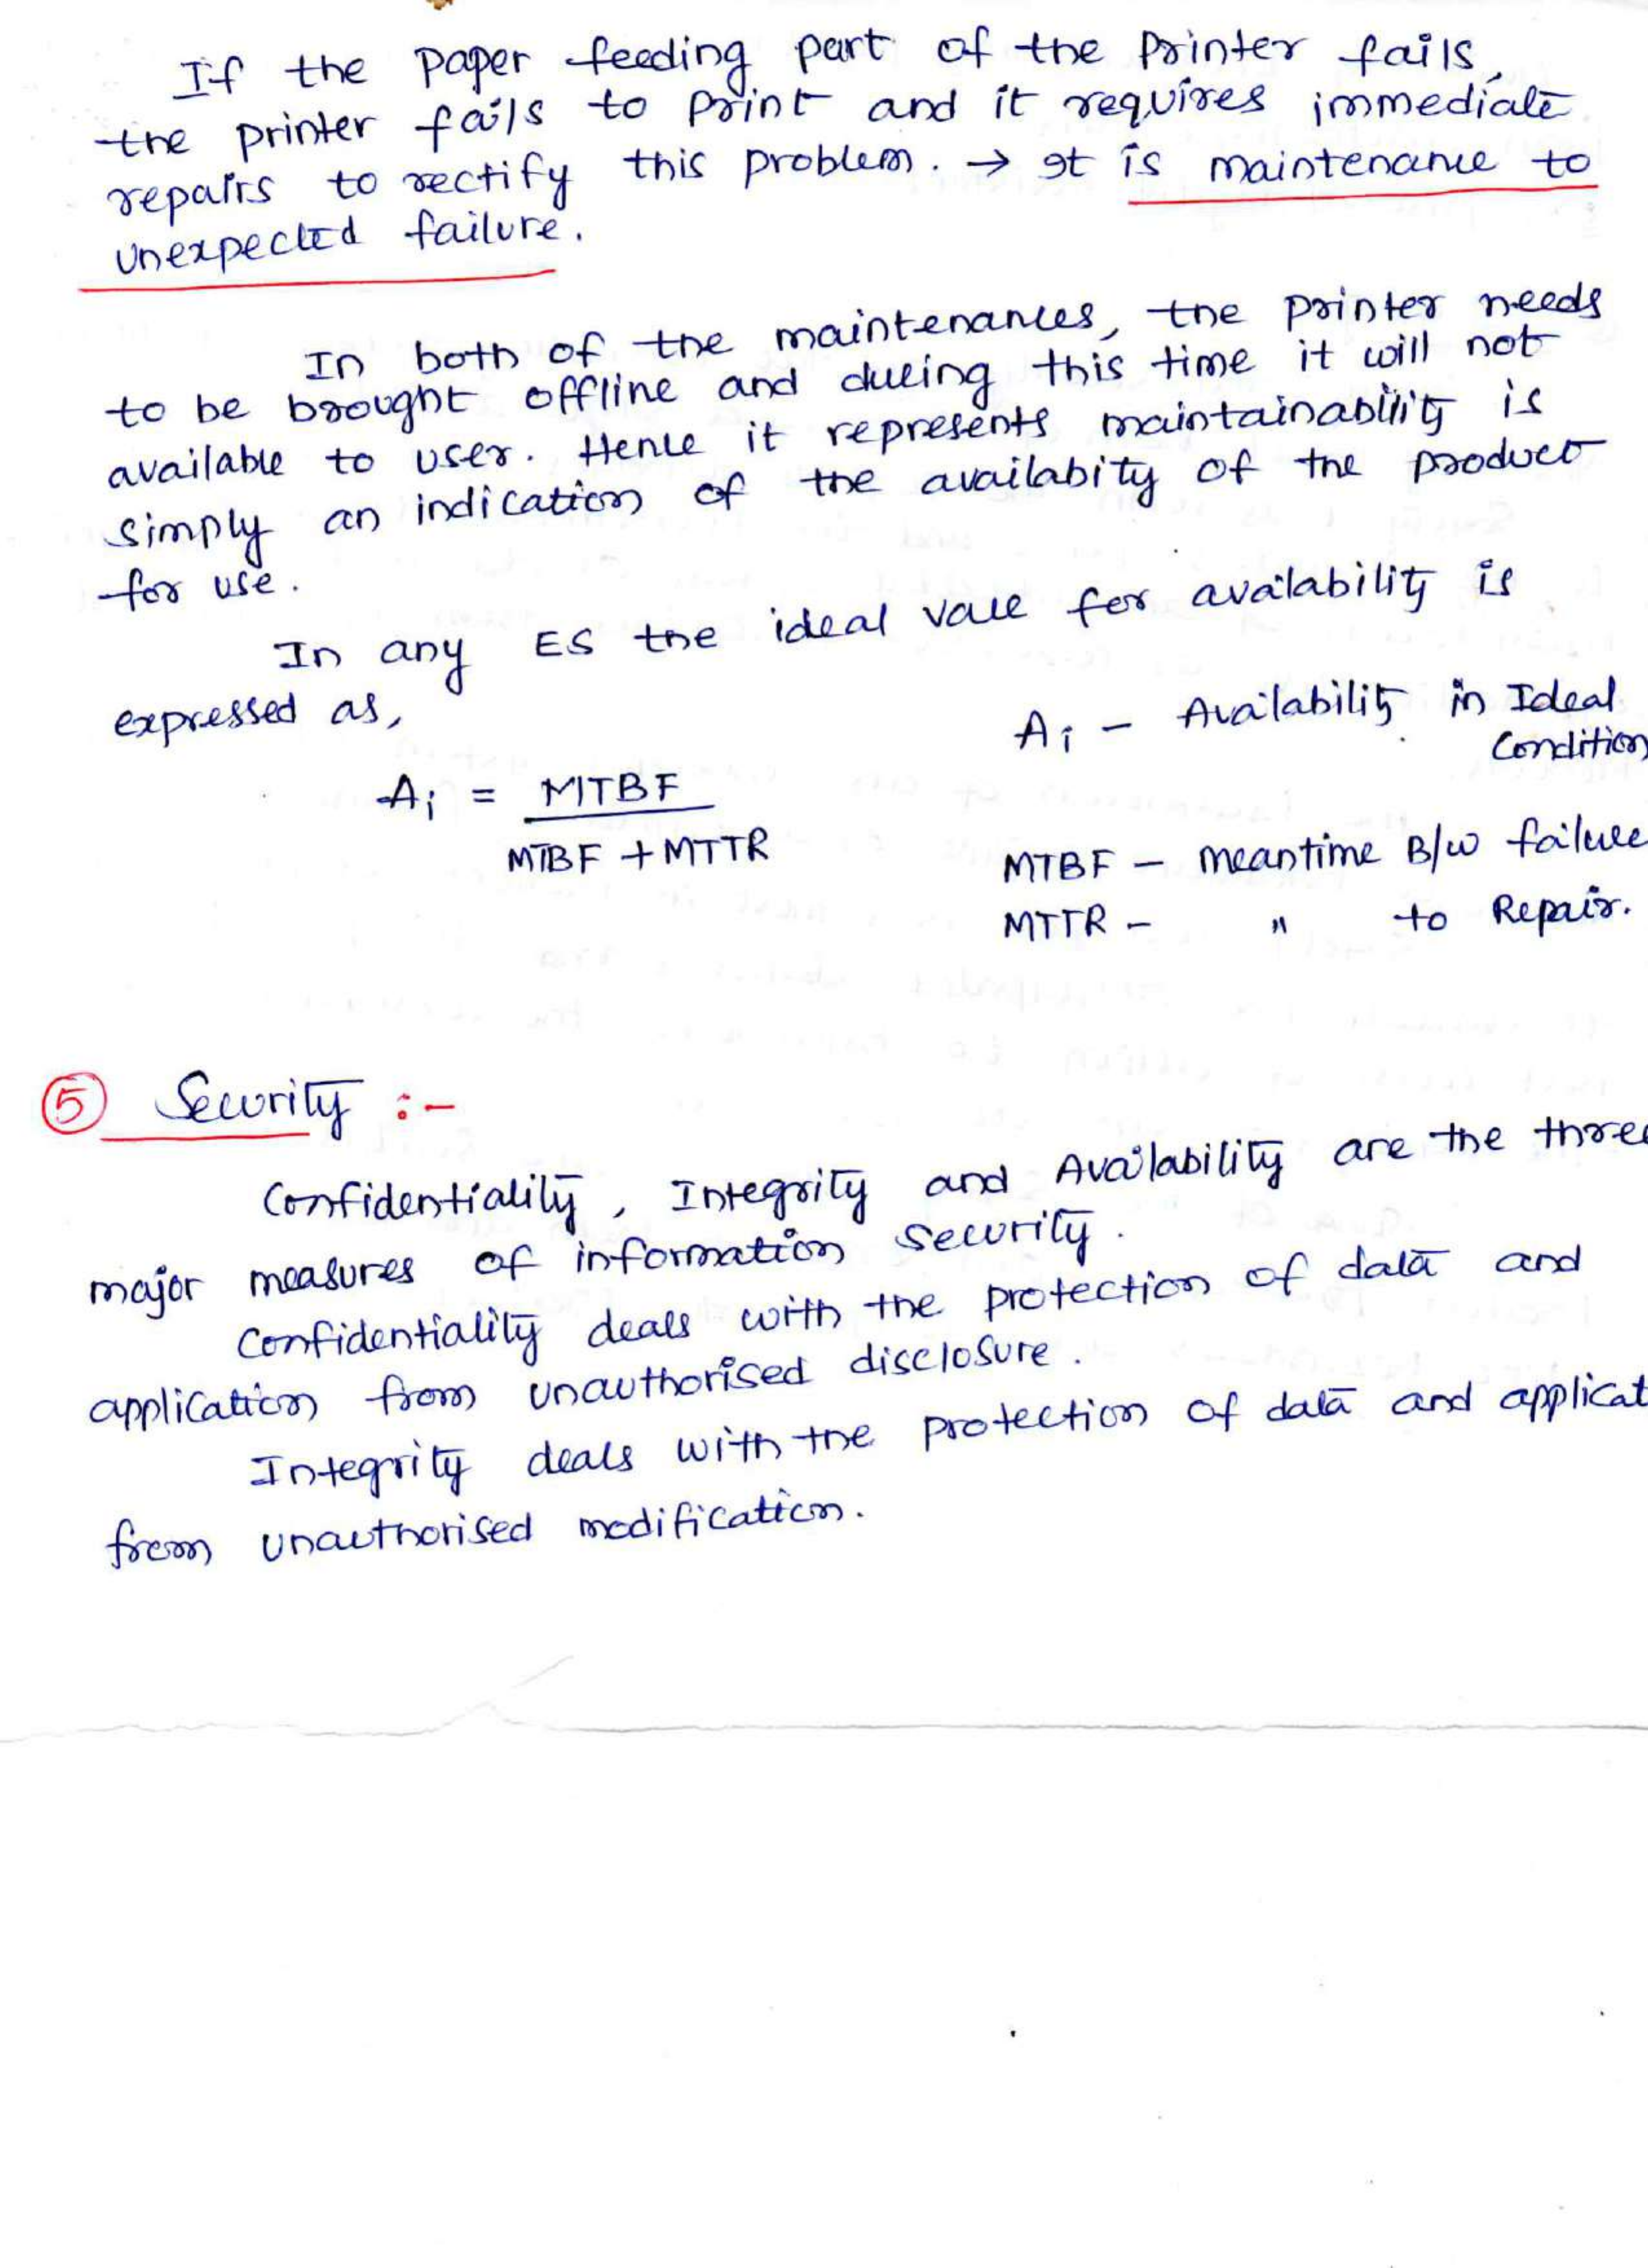 If the paper feeding part of the printer fails,
the printer fails to print and it requires immediate
repairs to rectify this problem. → It is maintenance to
unexpected failure.
In both of the maintenances, the printer needs
to be brought offline and during this time it will not
available to user. Hence it represents maintainability is
simply an indication of the availabity of the product
for use.
In any ES the ideal vale for availability is
expressed as,
Ai - Availability in Ideal
Condition
Ai = MTBF
MTBF + MTTR
MTBF - meantime B/w failure
MTTR - " to Repair.
⑤ Security :-
Confidentiality, Integrity and Availability are the three
major measures of information security.
Confidentiality deals with the protection of data and
application from unauthorised disclosure.
Integrity deals with the protection of data and applicat
from unauthorised modification.